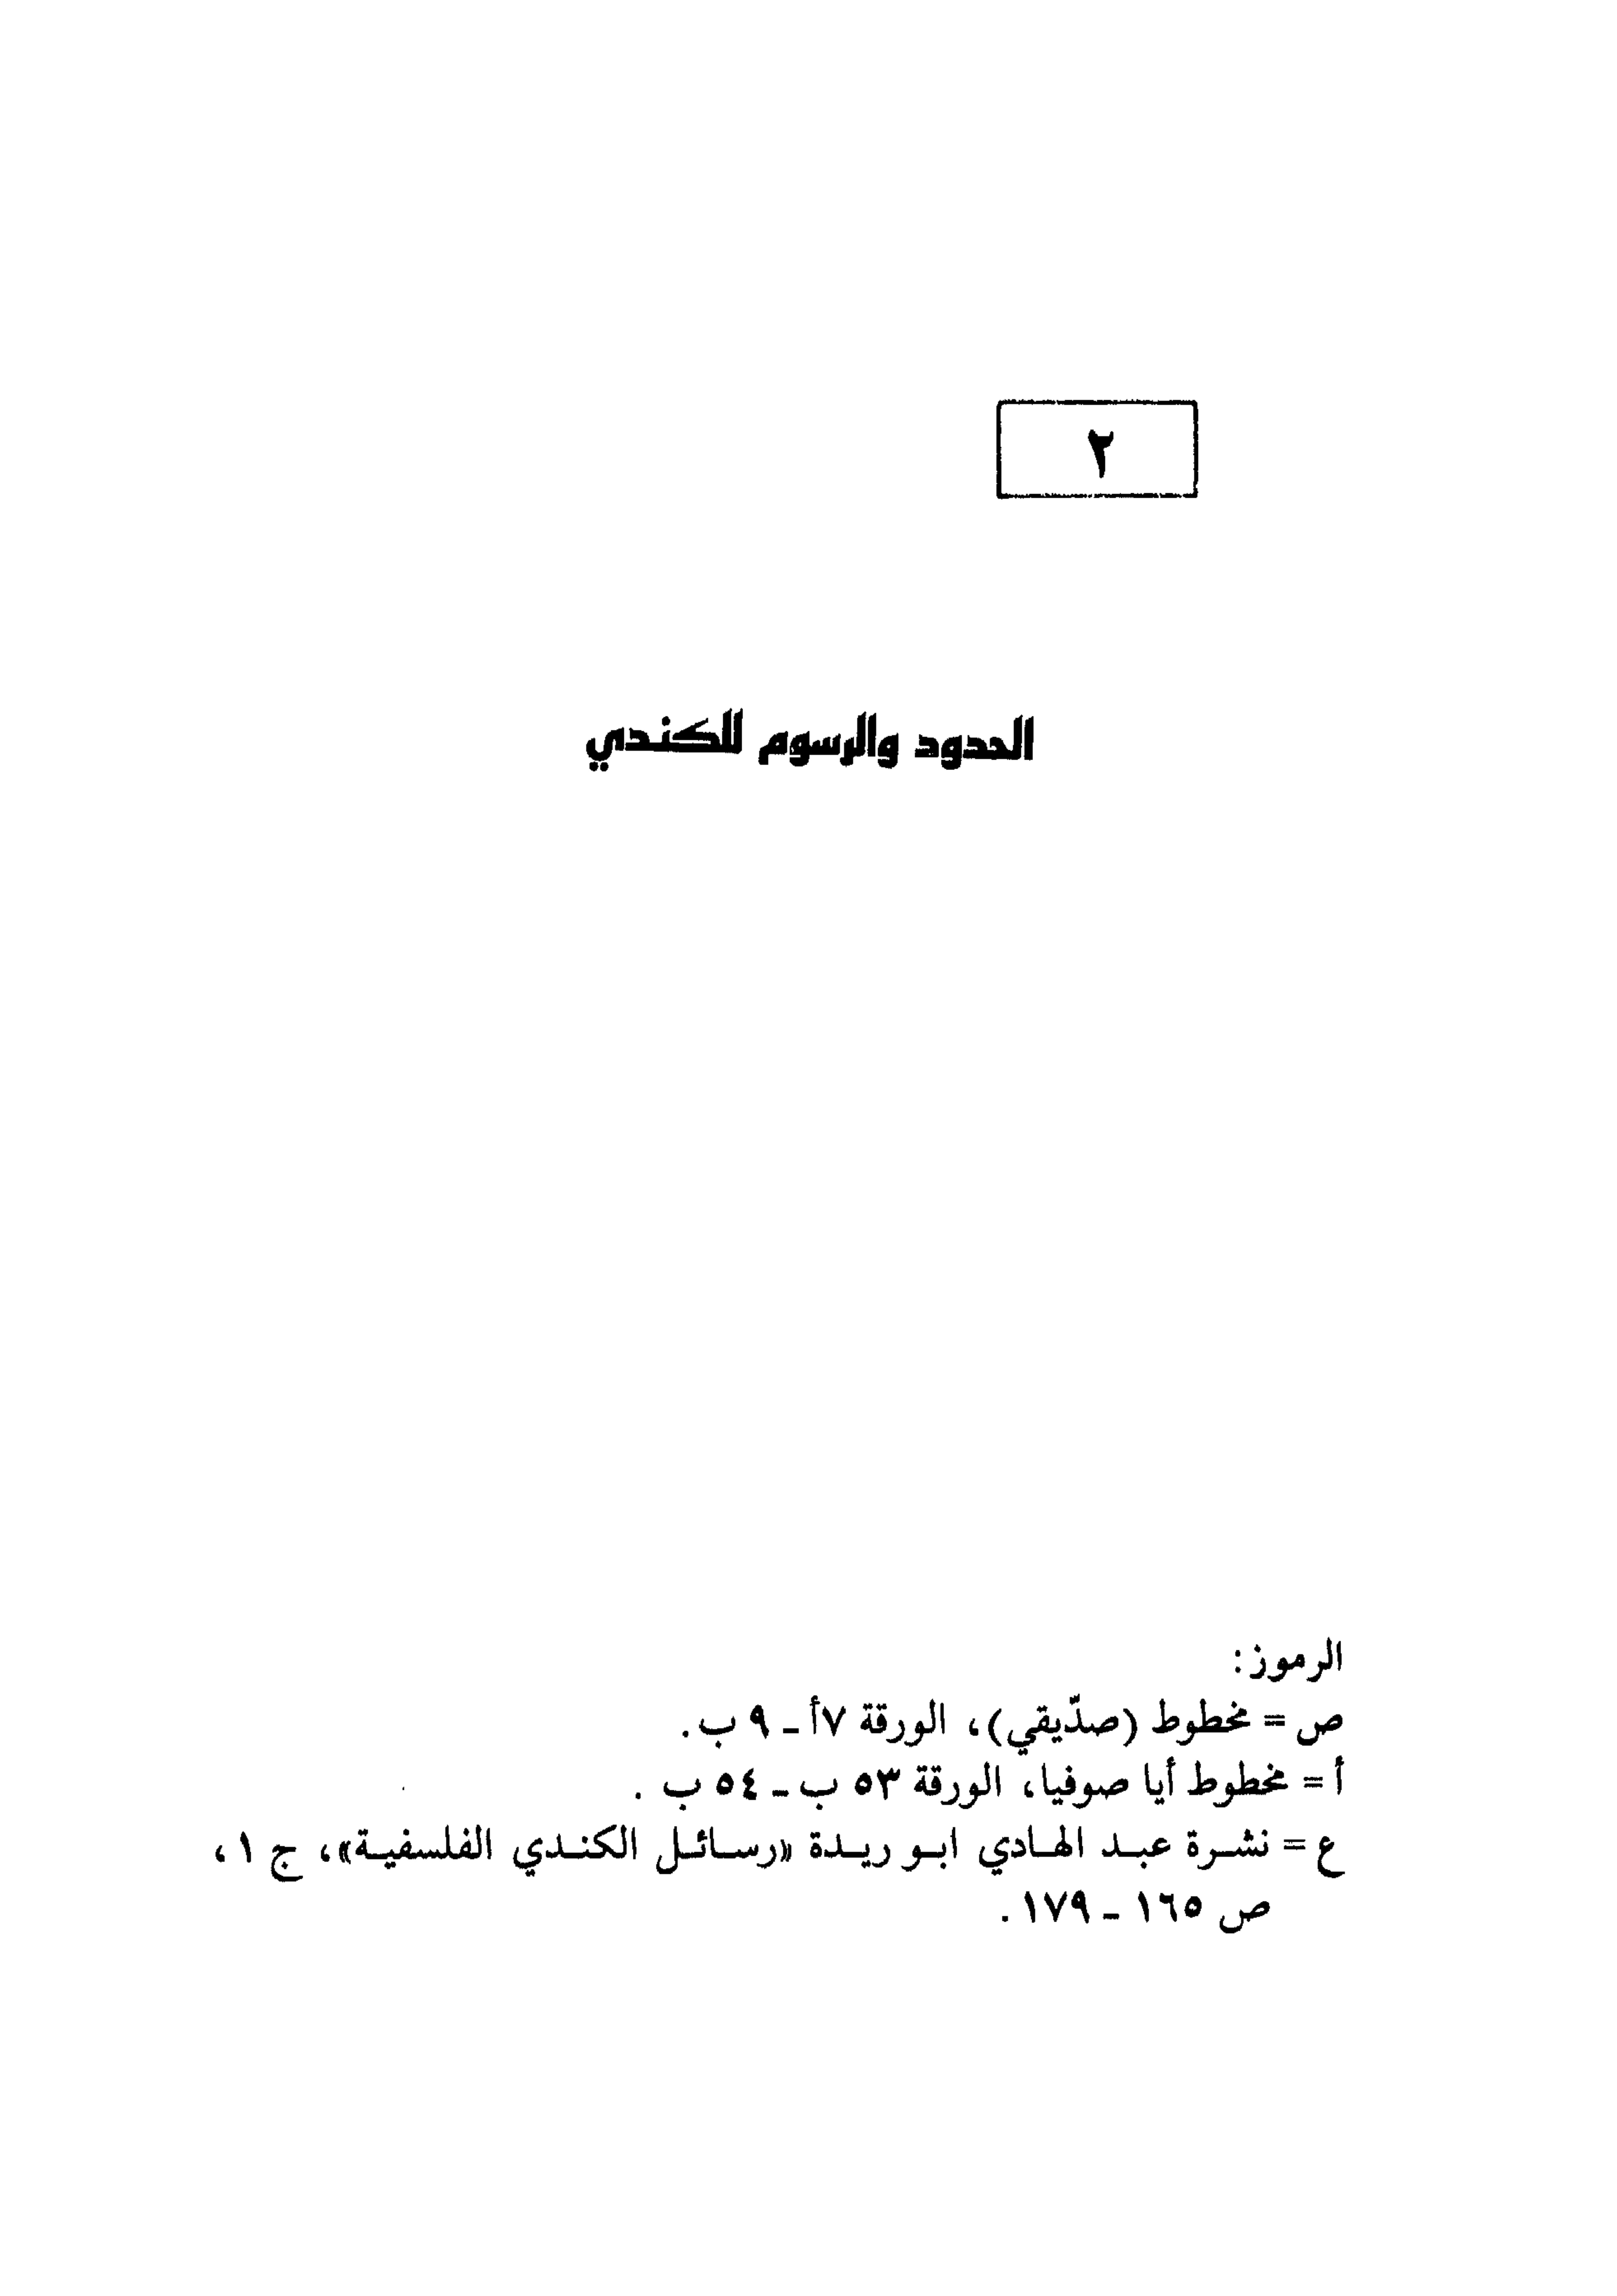 ٢
الحدود والرسوم للكندي
الرموز:
ص = مخطوط (صدّيقي)، الورقة ٧أ ـ ٩ ب.
أ = مخطوط أيا صوفيا، الورقة ٥٣ ب ـ ٥٤ ب .
ع = نشـرة عبـد الهـادي ابـو ريـدة «رسـائـل الكنـدي الفلسفيـة»، ج ١،
ص ١٦٥ ـ ١٧٩ .